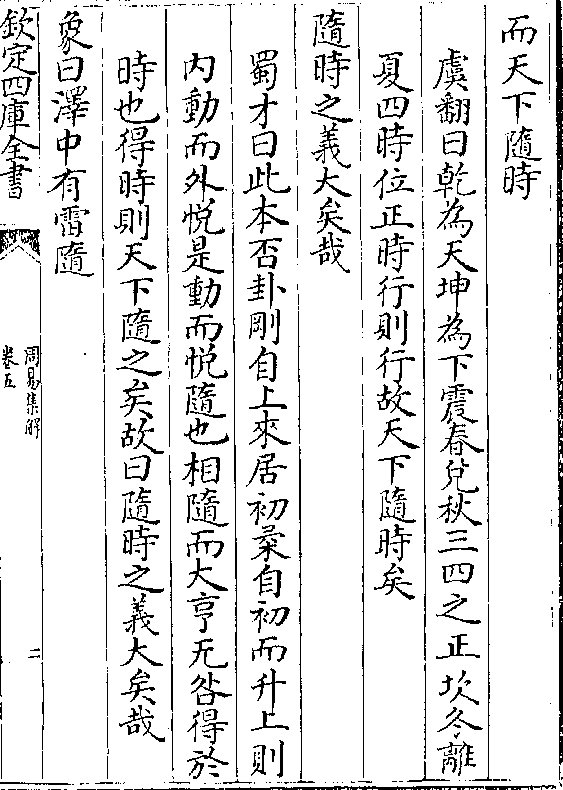 而天下隨時
虞翻曰乾為天坤為下震春兌秋三四之正坎冬離
夏四時位正時行則行故天下隨時矣
隨時之義大矣哉
蜀才曰此本否卦剛自上來居初柔自初而升上則
内動而外悅是動而悅隨也相隨而大亨无咎得於
時也得時則天下隨之矣故曰隨時之義大矣哉
象曰澤中有雷隨
欽定四庫全書
周易集解
卷五
二